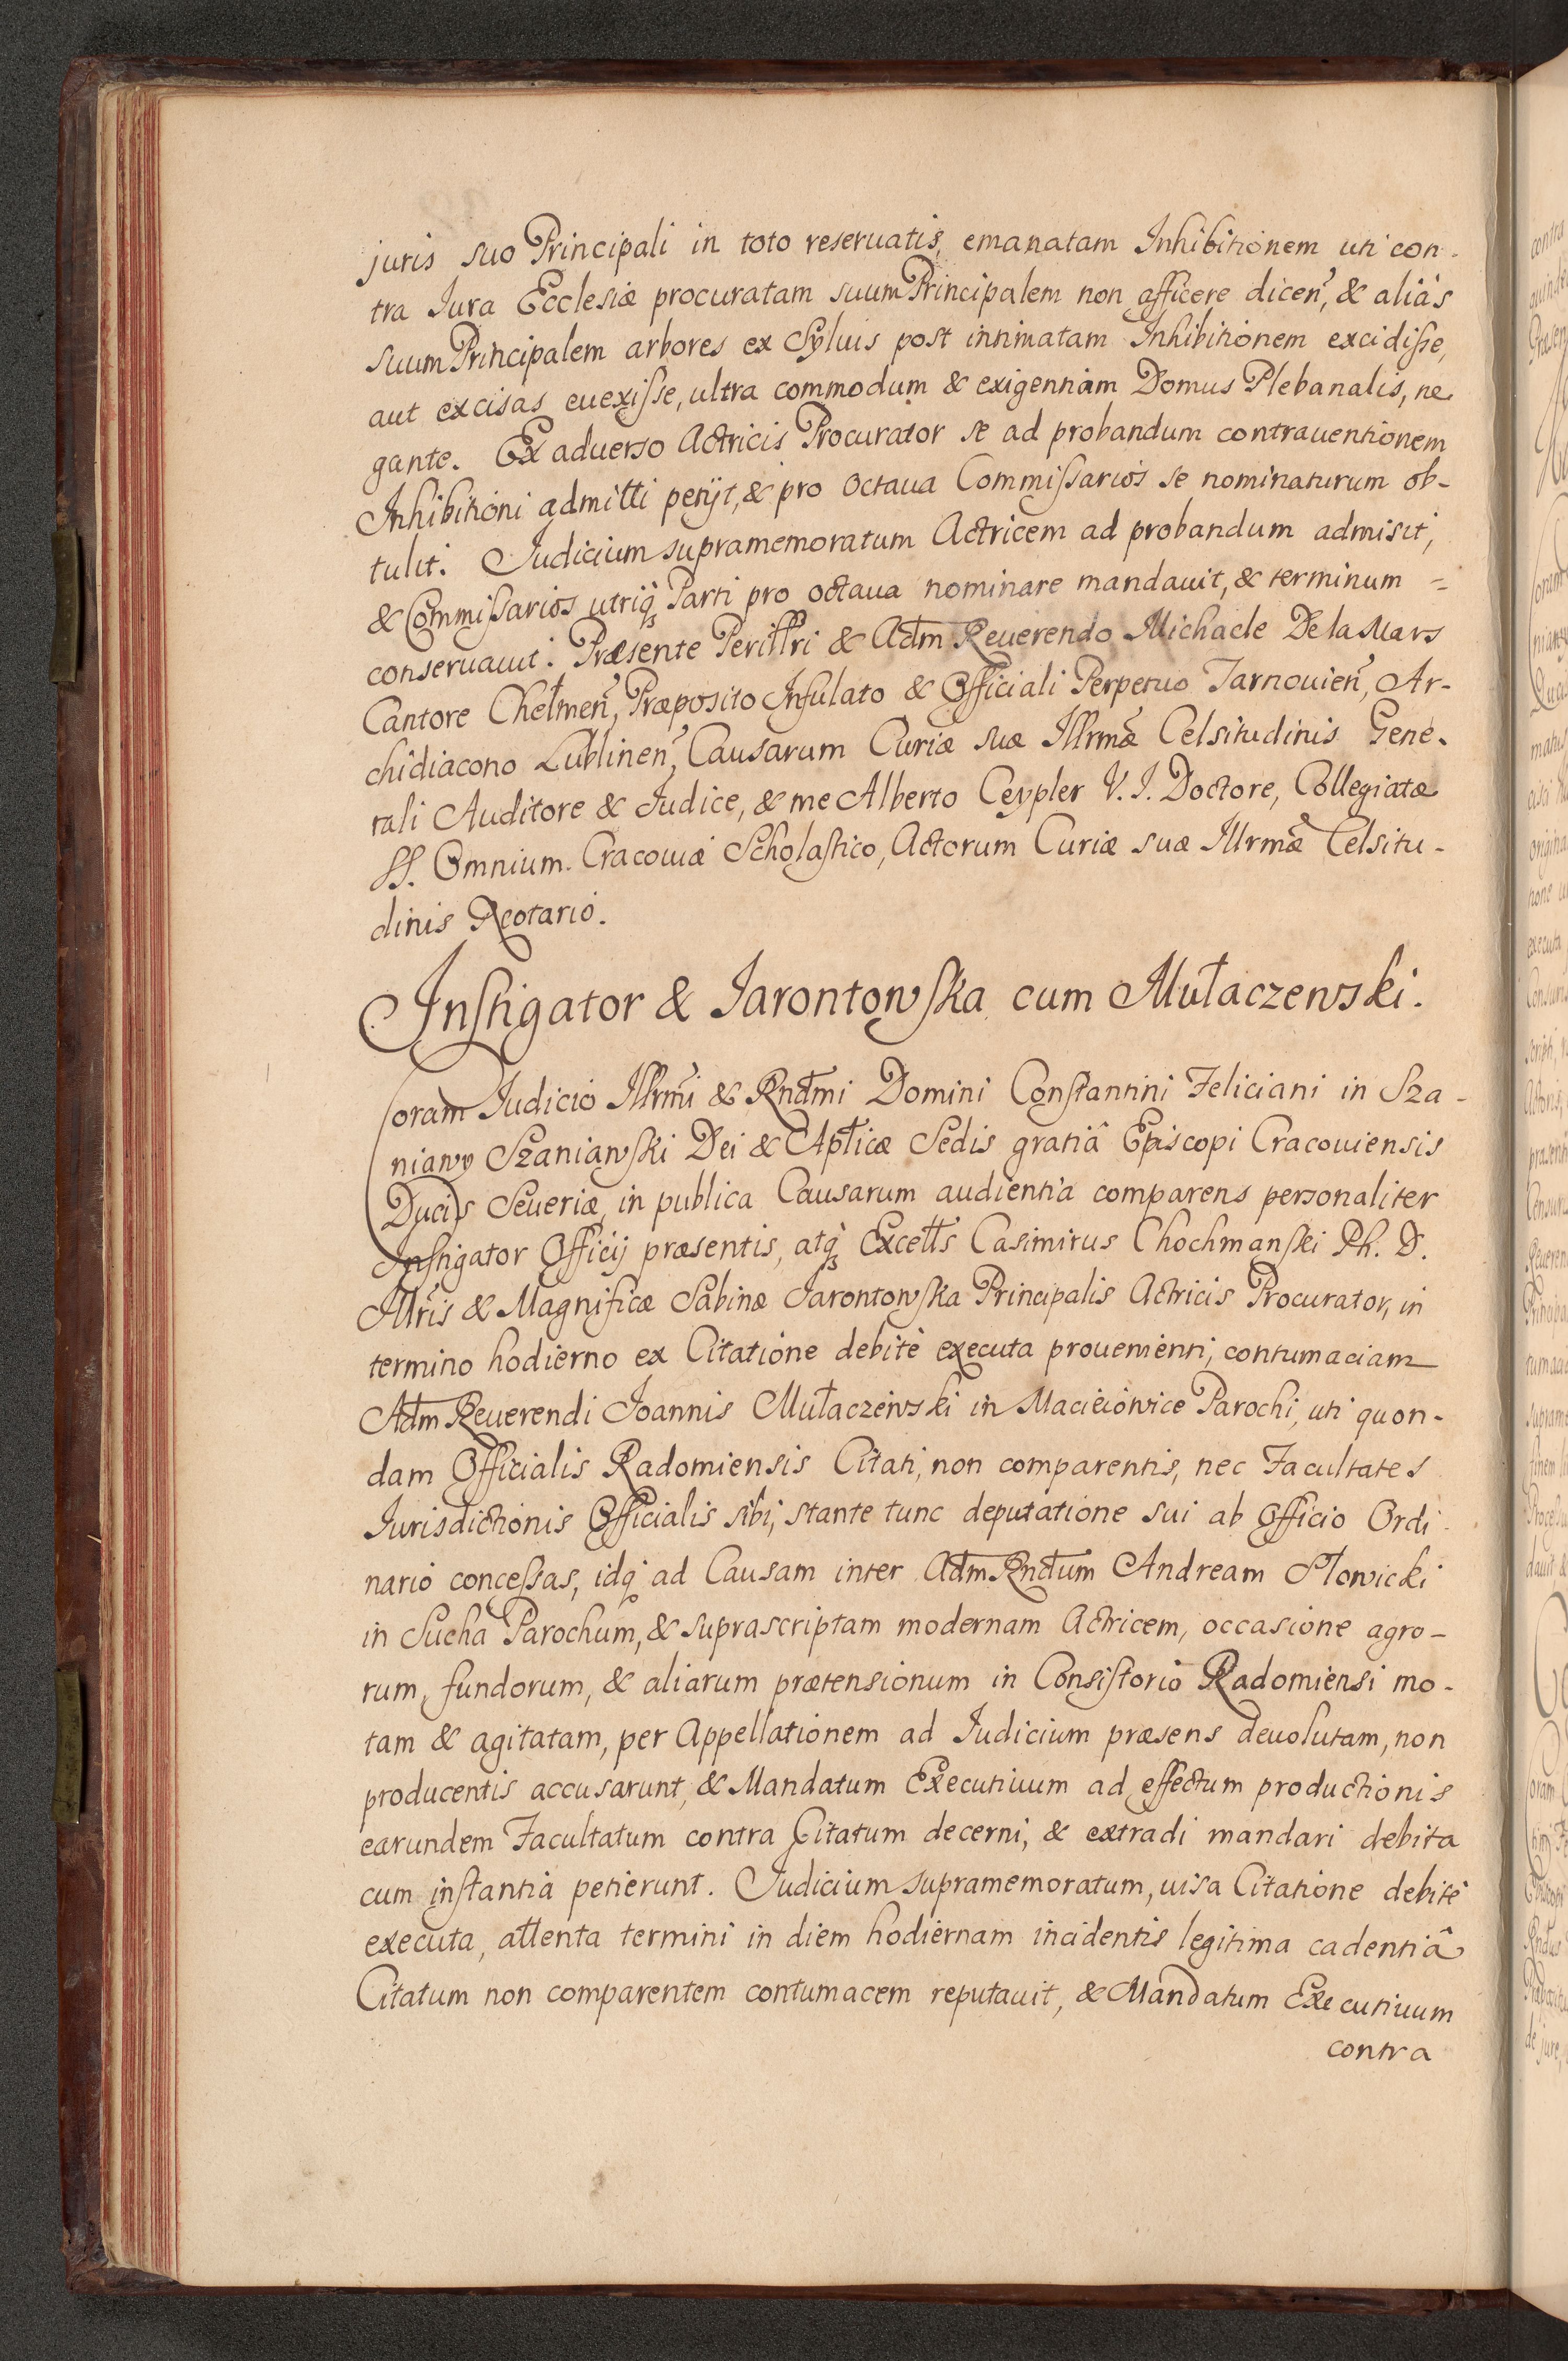 juris suo Principali in toto reseruatis, emanatam Inhibitionem uti con-
tra Iura Ecclesiæ procuratam suum Principalem non afficere dicen̄, & aliàs
suum Principalem arbores ex Syluis post intimatam Inhibitionem excidisse,
aut excisas euexisse, ultra commodum & exigentiam Domus Plebanalis, ne
gante. Ex aduerso Actricis Procurator se ad probandum contrauentionem
Inhibitioni admitti petijt, & pro octaua Commissarios se nominaturum ob-
tulit. Iudicium supramemoratum Actricem ad probandum admisit,
& Commissarios utriq̀ Parti pro octaua nominare mandauit, & terminum =
conseruauit. Præsente Perillri & Adm Reuerendo Michaele De la Mars
Cantore Chełmen̄, Præposito Infulato & Officiali Perpetuo Tarnouien̄, Ar-
chidiacono Lublinen̄, Causarum Curiæ suæ Illrmæ Celsitudinis Gene-
rali Auditore & Iudice, & me Alberto Ceypler V. I. Doctore, Collegiatæ
SS. Omnium Cracouiæ Scholastico, Actorum Curiæ suæ Illrmæ Celsitu-
dinis Notario.
Instigator & Iarontowska cum Mułaczewski.
Coram Iudicio Illrm̄i & Rndmi Domini Constantini Feliciani in Sza-
niawy Szaniawski Dei & Aplicæ Sedis gratiâ Episcopi Cracouiensis
Ducis Seueriæ, in publica Causarum audientia comparens personaliter
Instigator Officij præsentis, atq̀ Excells Casimirus Chochmanski Ph. D.
Illris & Magnificæ Sabinæ Iarontowska Principalis Actricis Procurator, in
termino hodierno ex Citatione debitè executa prouenienti, contumaciam
Adm Reuerendi Ioannis Mułaczewski in Macieiowice Parochi, uti quon-
dam Officialis Radomiensis Citati, non comparentis, nec Facultates
Iurisdictionis Officialis sibi, stante tunc deputatione sui ab Officio Ordi-
nario concessas, idq̀ ad Causam inter Adm Rndum Andream Słowicki
in Sucha Parochum, & suprascriptam modernam Actricem, occasione agro-
rum, fundorum, & aliarum prætensionum in Consistorio Radomiensi mo-
tam & agitatam, per Appellationem ad Iudicium præsens deuolutam, non
producentis accusarunt, & Mandatum Executiuum ad effectum productionis
earundem Facultatum contra Citatum decerni, & extradi mandari debita
cum instantia petierunt. Iudicium supramemoratum, uisa Citatione debitè
executa, attenta termini in diem hodiernam incidentis legitima cadentiâ
Citatum non comparentem contumacem reputauit, & Mandatum Executiuum
contra